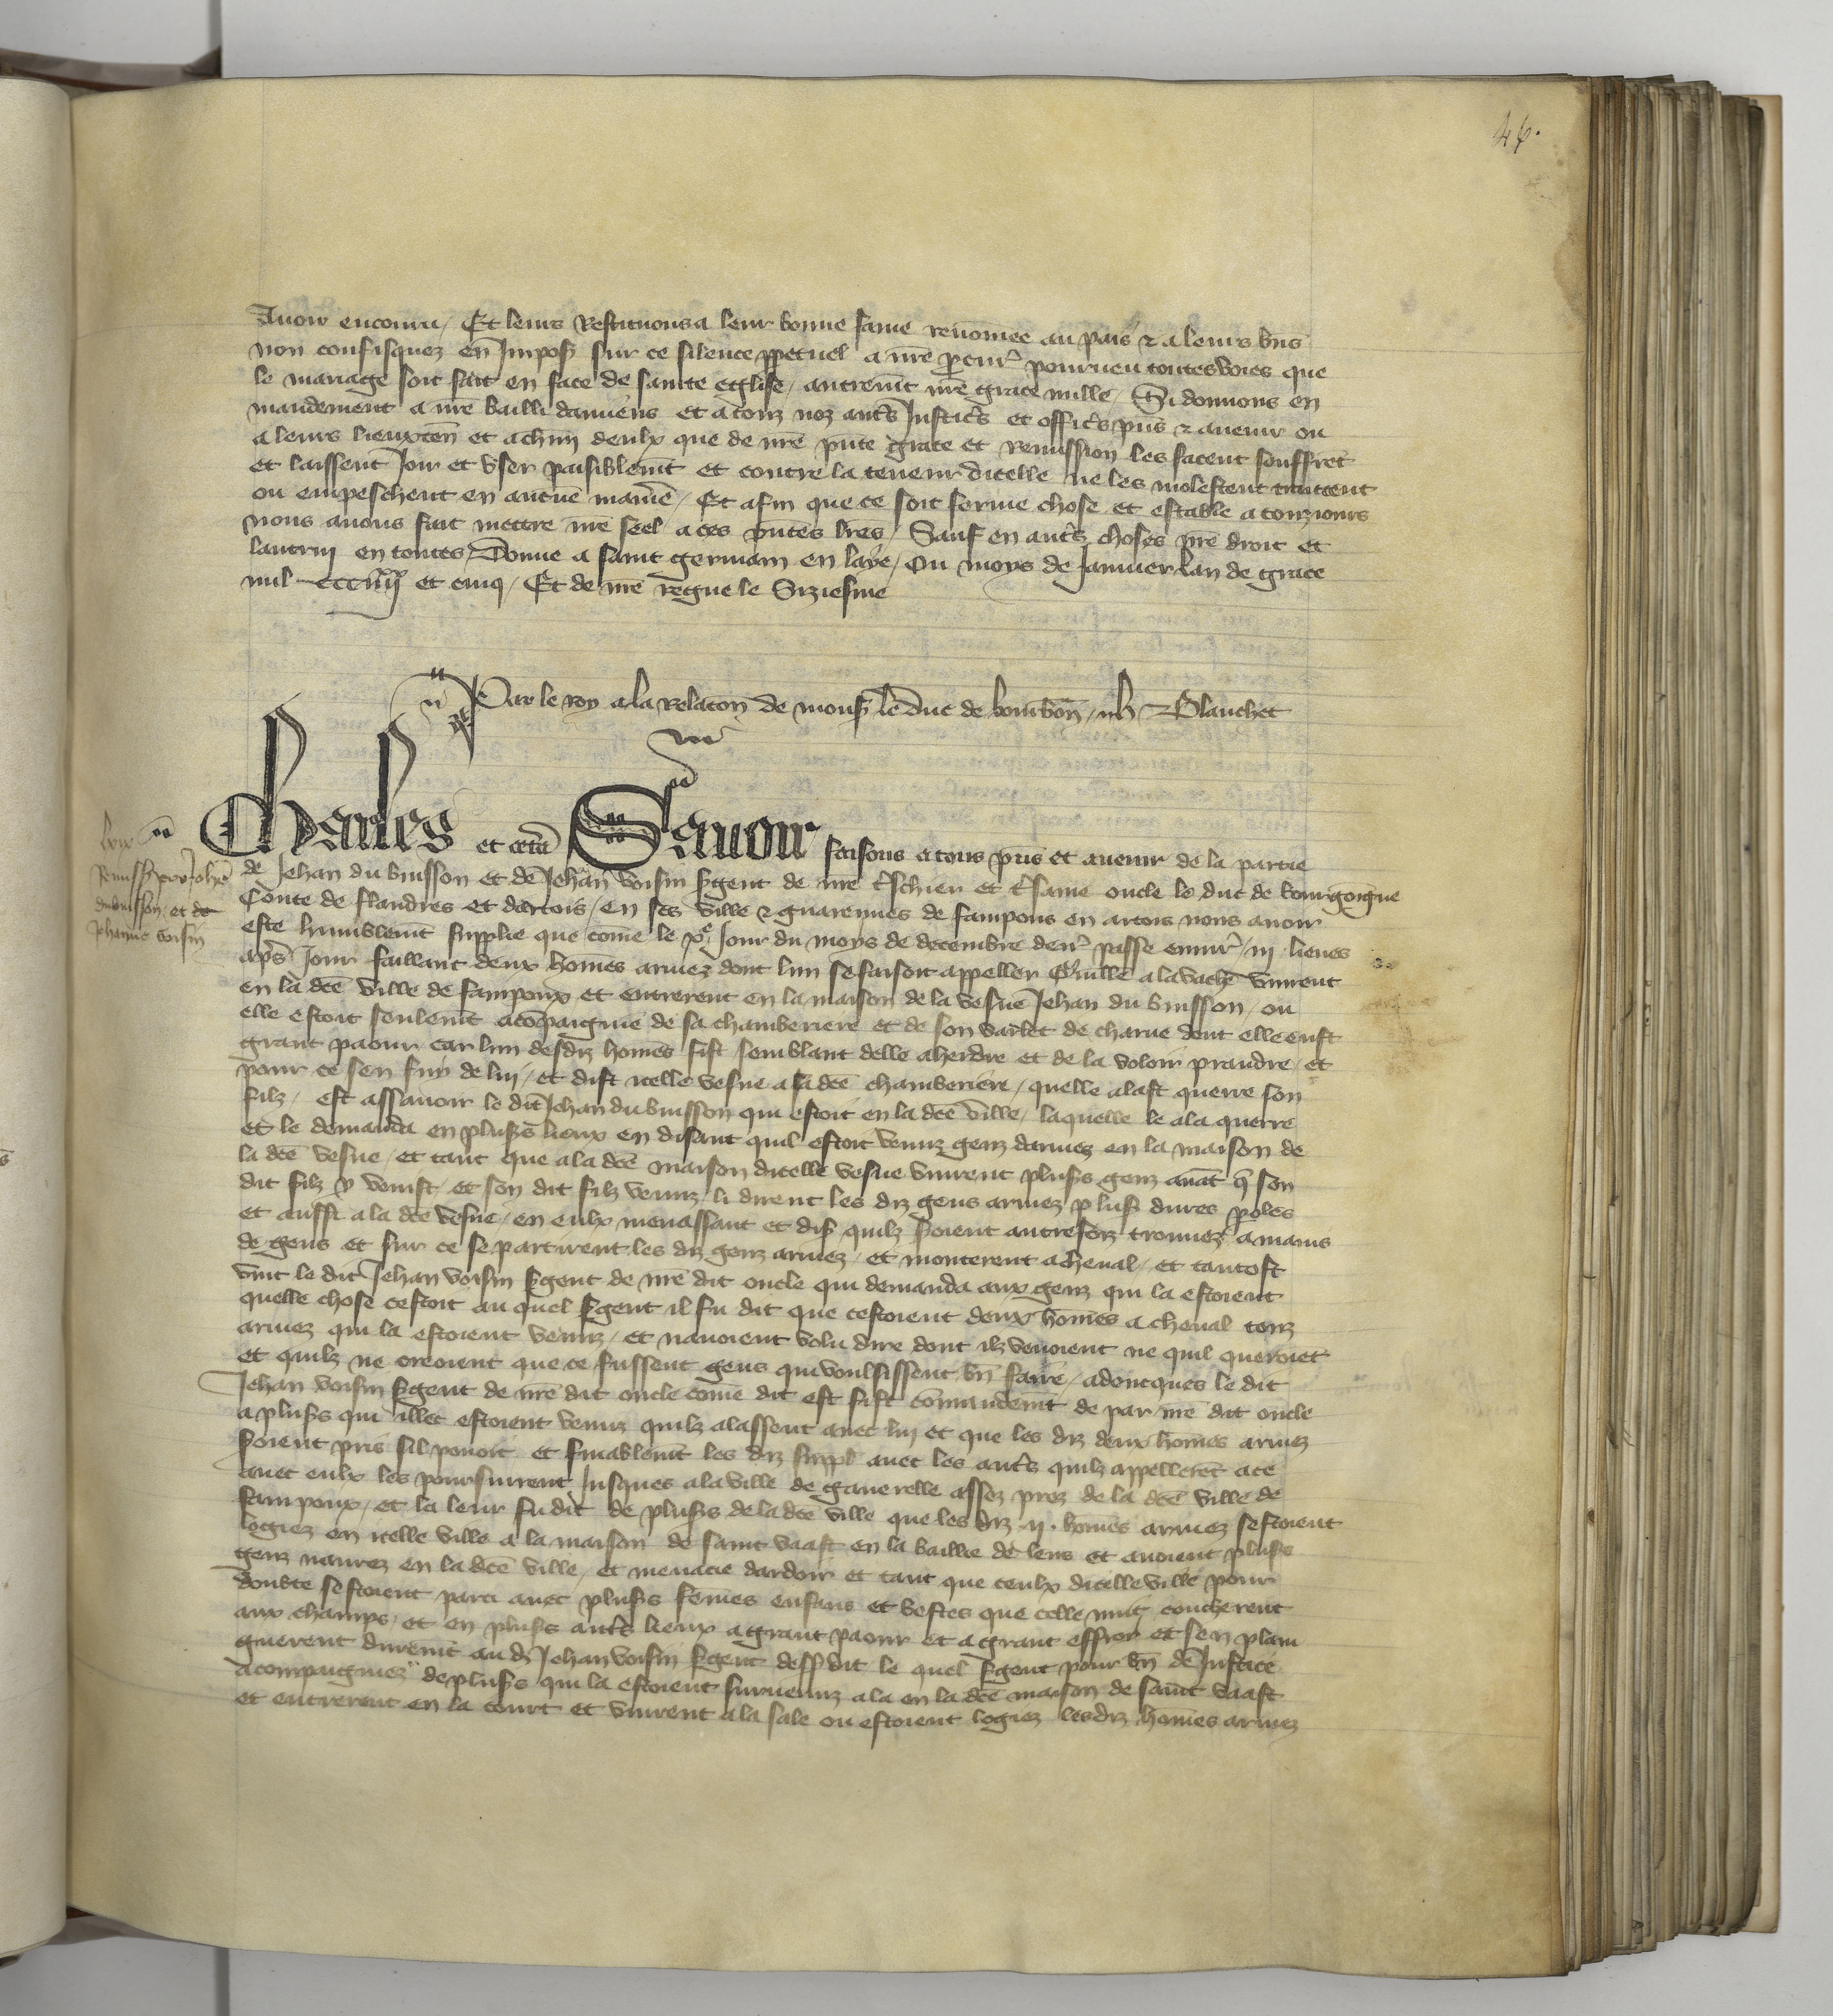 46.
Avoir encouru / Et leurs Restituons a leur bonne fame renōmee au pais & a leurs bñs
non confisquez en Impost sur ce silence ppetuel a nr̃e pcur̃ pourveu toutesvoies que
le mariage soit fait en face de saincte eglise / autremt̃ nr̃e grace nulle / Si donnons en
mandement a nr̃e bailli damiens et a touz noz autr̃s Justic̃s et offic̃s p̃ns & avenir ou
a leurs lieuxten̄ et a chūn deulx que de nr̃e p̃nte grace et Remission les facent souffrent
et laissent Joir et user paisiblemt̃ et contre la teneur dicelle ne les molestent traictent
ou empeschent en aucūe maniēe / Et afin que ce soit ferme chose et estable a touzjours
nous avons fait mettre nr̃e seel a ces p̃ntes lr̃es / Sauf en autr̃s choses nr̃e droit et
lautruy en toutes / Donne a saint germain en laye / Ou moys de Janvier lan de grace
mil ccciiijxx et cinq / Et de nr̃e regne le Siziesme
Par le roy a la relacōn de mons̃ le duc de bourbon̄ / Blanchet
Charles et cetã Savoir faisons a tous p̃ns et avenir de la partie
Remiss̃ pro Joh̃e
du buisson et de
Jehanne voisin
de Jehan du buisson et de Jehan voisin s̃gent de nr̃e tr̃schier et tr̃same oncle le duc de bourgoigne
Conte de flandres et dartois / en ses ville & guarennes de fampous en artois nous avoir
este humblemt̃ supplie que cōme le xe Jour du moys de decembre den̄r passe envir̃ / iij lieues
apr̃s Jour faillant deux hōmes armez dont lun se faisoit appeller Guillē a la vache vinrent
en la dc̃e ville de fampoux et entrerent en la maison de la vesve Jehan du buisson / ou
elle estoit seulemt̃ acōpaignie de sa chamberiere et de son varlet de charue dont elle eust
grant paour car lun desdiz hōmes fist semblant delle aherdre et de la voloir prandre / et
pour ce sen fuy de luy / et dist icelle vesve a la dc̃e chamberiere / quelle alast querre son
filz / est assavoir le dit Jehan du buisson qui estoit en la dc̃e ville / laquelle le ala querre
et le demanda en plus̃s lieux en disant quil estoit venuz genz darmes en la maison de
la dc̃e vesve / et tant que a la dc̃e maison dicelle vesve vinrent plus̃s genz avāt q̃ son
dit filz y venist / et son dit filz venuz / li dirent les diz gens armez plus̃ dures poles
et aussi a la dc̃e vesve / en eulx menassant et dis̃ quilz s̃oient autrefoiz trouvez a mains
de gens et sur ce se partirent les diz genz armez / et monterent a cheval / et tantost
vint le dit Jehan voisin s̃gent de nr̃e dit oncle qui demanda aux genz qui la estoient
quelle chose cestoit au quel s̃gent il fu dit que cestoient deux hōmes a cheval touz
armez qui la estoient venuz / et navoient volu dire dont ilz venoient ne quil queroiēt
et quilz ne creoient que ce fussent gens qui voulsissent bn̄ faire / adoncques le dit
Jehan voisin s̃gent de nr̃e dit oncle cōme dit est fist cōmandemt̃ de par nr̃e dit oncle
a plus̃s qui illec estoient venuz quilz alassent avec luy et que les diz deux hōmes armez
s̃oient pris sil povoit et finablemt̃ les diz suppl̃ avec les autr̃s quilz appellerēt a ce
avec eulx les poursuirent Jusques a la ville de gaverelle assez prez de la dc̃e ville de
fampoux / et la leur fu dit de plus̃s de la dc̃e ville que les diz .ij. hōmes armez sestoient
logiez en icelle ville a la maison de saint vaast en la baillie de lens et avoient plus̃s
genz navrez en la dc̃e ville / et menacie dardoir et tant que ceulx dicelle ville pour
doubte sestoient parti avec plus̃s femes enfans et bestes que celle nuit coucherent
aux champs / et en plus̃s autr̃s lieux a grant paour et a grant effroy et sen plain
gnerent duremt̃ au dit Jehan voisin s̃gent dess̃ dit le quel s̃gent pour bn̄ de Justice
acompaigniez de plus̃s qui la estoient survenuz ala en la dc̃e maison de saint vaast
et entrerent en la court et vinrent a la sale ou estoient logiez lesdiz hōmes armez